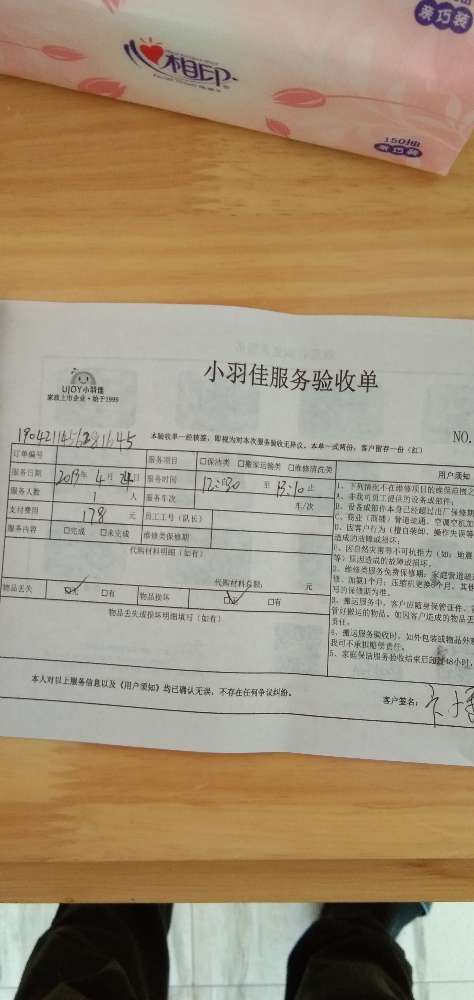 亲巧装
心相印
150抽
亲巧装
UJOY小羽佳
家政上市企业·始于1999
小羽佳服务验收单
本验收单一经核签，即视为对本次服务验收无异议。本单一式两份，客户留存一份（红）
NO.
订单编号
服务项目 □保洁类 □搬家运输类 □维修清洗类
用户须知
服务日期 2019年 4月 日
服务时间 12:30 至 13:10 止
服务人数 1 人
服务车次 车/次
支付费用 178 元
员工工号（队长）
服务内容 □完成 □未完成
维修类保修期
代购材料明细（如有）
代购材料总额： 元
物品丢失 □无 □有
物品损坏 □无 □有
物品丢失或损坏明细填写（如有）
1、下列情况不在维修项目的维保范围之
A、非我司员工提供的设备或部件；
B、设备或部件本身已经超过出厂保修期
C、商业（商铺）管道疏通、空调空调加
D、因客户行为（擅自装卸、操作失误等
造成的故障或损坏；
E、因自然灾害等不可抗拒力（如：地震
等）原因造成的故障或损坏。
2、维修类服务免费保修期：家庭管道疏
修、加氟1个月；压缩机更换3个月，其他
写的保修期为准。
3、搬运服务中，客户应随身保管证件、
管好搬运的物品，如因客户造成的物品丢
责任。
4、搬运服务验收时，如外包装或物品外
我司不承担赔偿责任。
5、家庭保洁服务验收结束后超过48小时，
本人对以上服务信息以及《用户须知》均已确认无误，不存在任何争议纠纷。
客户签名：